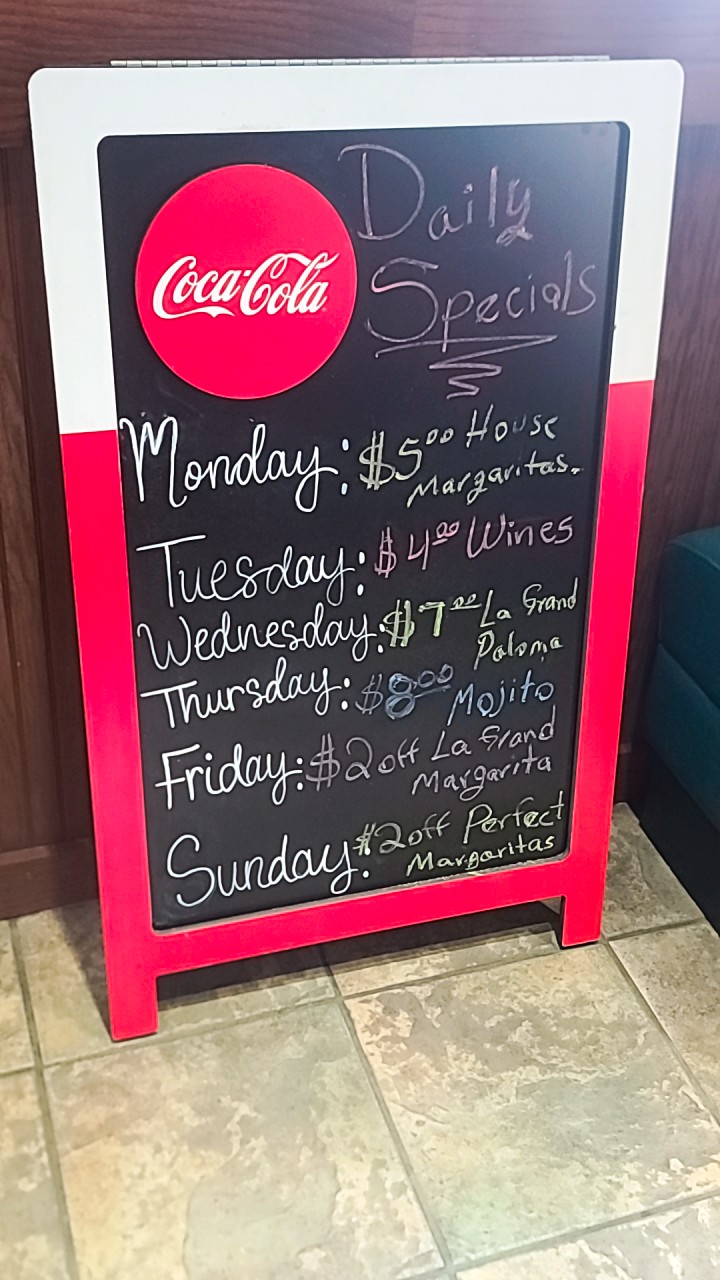 Coca-Cola
Daily
Specials
Monday: $5.00 House
Margaritas.
Tuesday: $4.00 Wines
Wednesday: $7.00 La Grand
Paloma
Thursday: $8.00 Mojito
Friday: $2 off La Grand
Margarita
Sunday: $2 off Perfect
Margaritas